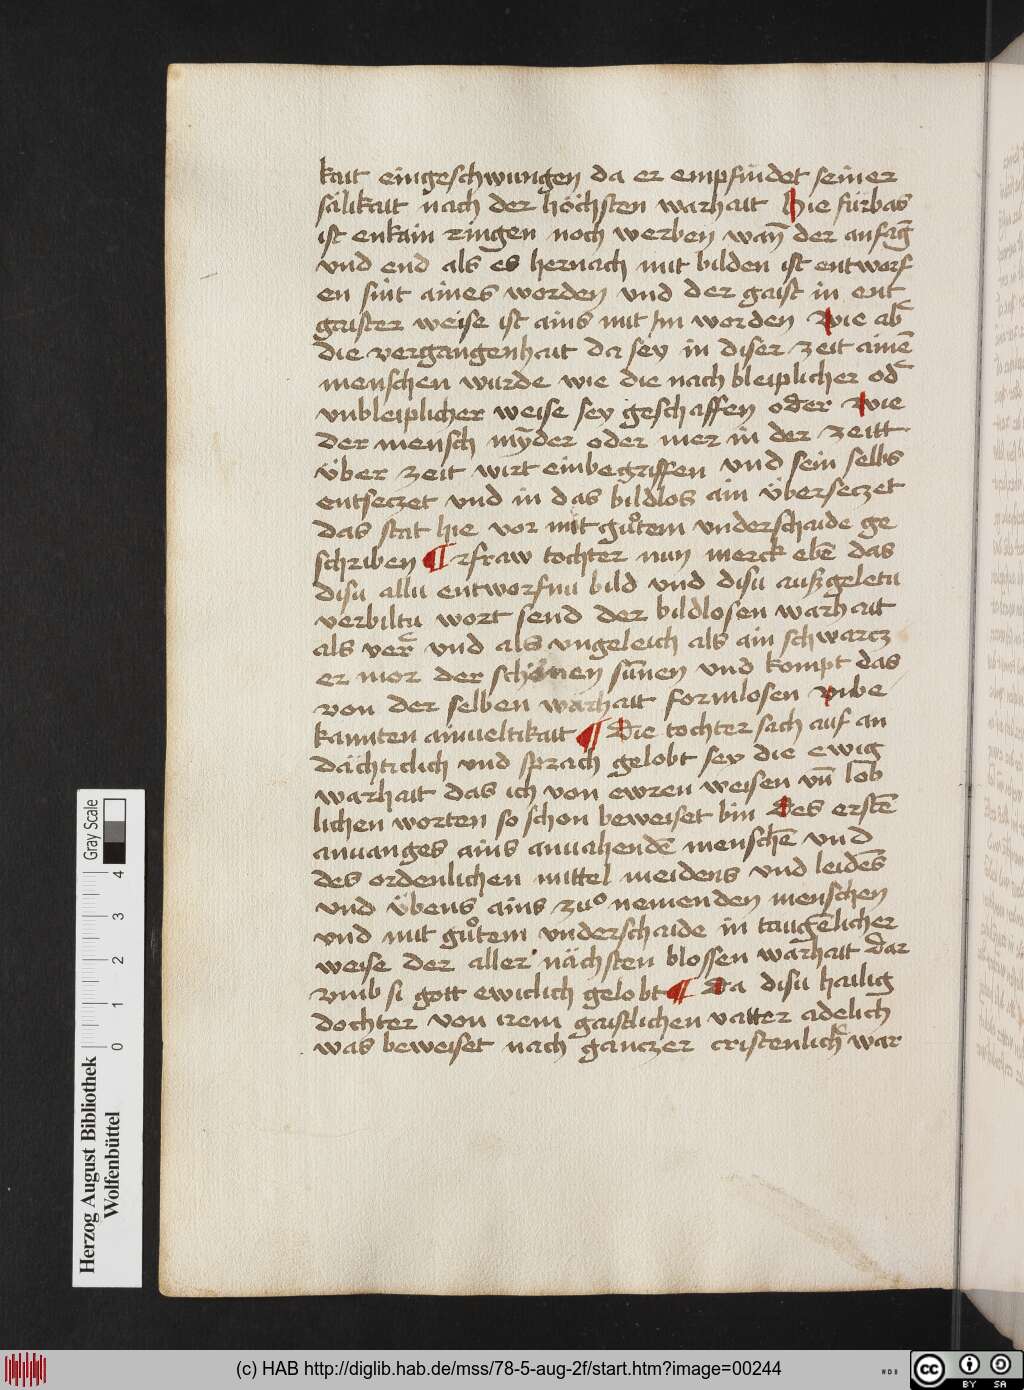 kait eingeschwungen da er empfindet seiner
sälikait nach der höchsten warhait Hie fürbas
ist enkain ringen noch werben wañ der anfāg
vnd end als es hernach mit bilden ist entworf
en sint aines worden vnd der gaist in ent
gaister weise ist ains mit Im worden Wie ab͛
die vergangenhait da sey in diser zeit ainē
menschen wurde wie die nach bleiplicher od͛
vnbleiplicher weise sey geschaffen oder Wie
der mensch mÿder oder mer in der zeitt
über zeit wirt einbegriffen vnd sein selbs
entseczet vnd in das bildlos ain überseczet
das stat hie vor mit gůtem vnderschaide ge
schriben ¶ rfraw tochter nun merck ebē das
disu allu entworfnu bild vnd disu außgeletu
verbiltu wort send der bildlosen warhait
als ver͛ vnd als vngeleich als ain schwarcz
er mor der schönen sūnen vnd kompt das
von der selben warhait formlosen vnbe
kannten ainueltikait ¶ Die tochter sach auf an
dächticlich vnd sprach gelobt sey die ewig
warhait das ich von ewren weisen vn̄ lob
lichen worten so schon beweiset bin Des erstē
anuanges ains anuahendē menschē vnd
des ordenlichen mittel meidens vnd leidēs
vnd übens ains zuͦ nemenden menschen
vnd mit gůtem vnderschaide in taugēlicher
weise der aller nächsten blossen warhait dar
vmb si gott ewiclich gelobt ¶ Da disu hailig
dochter von irem gaistlichen vatter adelich
was beweiset nach ganczer cristenlich͛ war
Gray Scale
0 1 2 3 4
Herzog August Bibliothek
Wolfenbüttel
(c) HAB http://diglib.hab.de/mss/78-5-aug-2f/start.htm?image=00244
cc BY SA